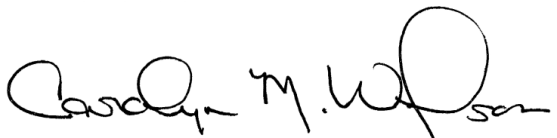 Carolyn M. Wilson